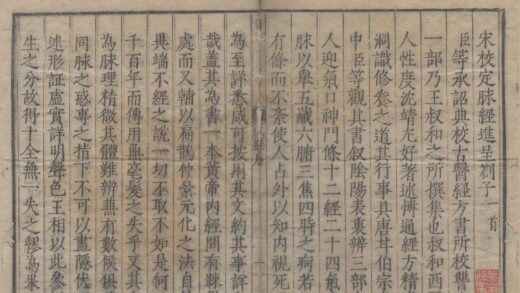 宋校定脉經進呈劄子一首
臣等承詔典校古醫經方書所校讐
一部乃王叔和之所撰集也叔和西
人性度沈靖尤好著述博通經方精
洞識修養之道其行事具唐甘伯宗
中臣等觀其書叙陰陽表裏辨三部
人迎氣口神門條十二經二十四氣
脉以舉五藏六腑三焦四時之痾若
有條而不紊使人占外以知内視死
為至詳悉咸可按用其文約其事詳
哉蓋其為書一本黄帝内經間有疎
處而又輔以扁鵲仲景元化之法自
異端不經之說一切不取不如是何
千百年而傳用無毫髮之失乎又其
為脉理精微其體難辨兼有數候俱
同脉之惑專之指下不可以盡隱伏
述形証虚實詳明聲色王相以此參
生之分故得十全無一失之繆為果